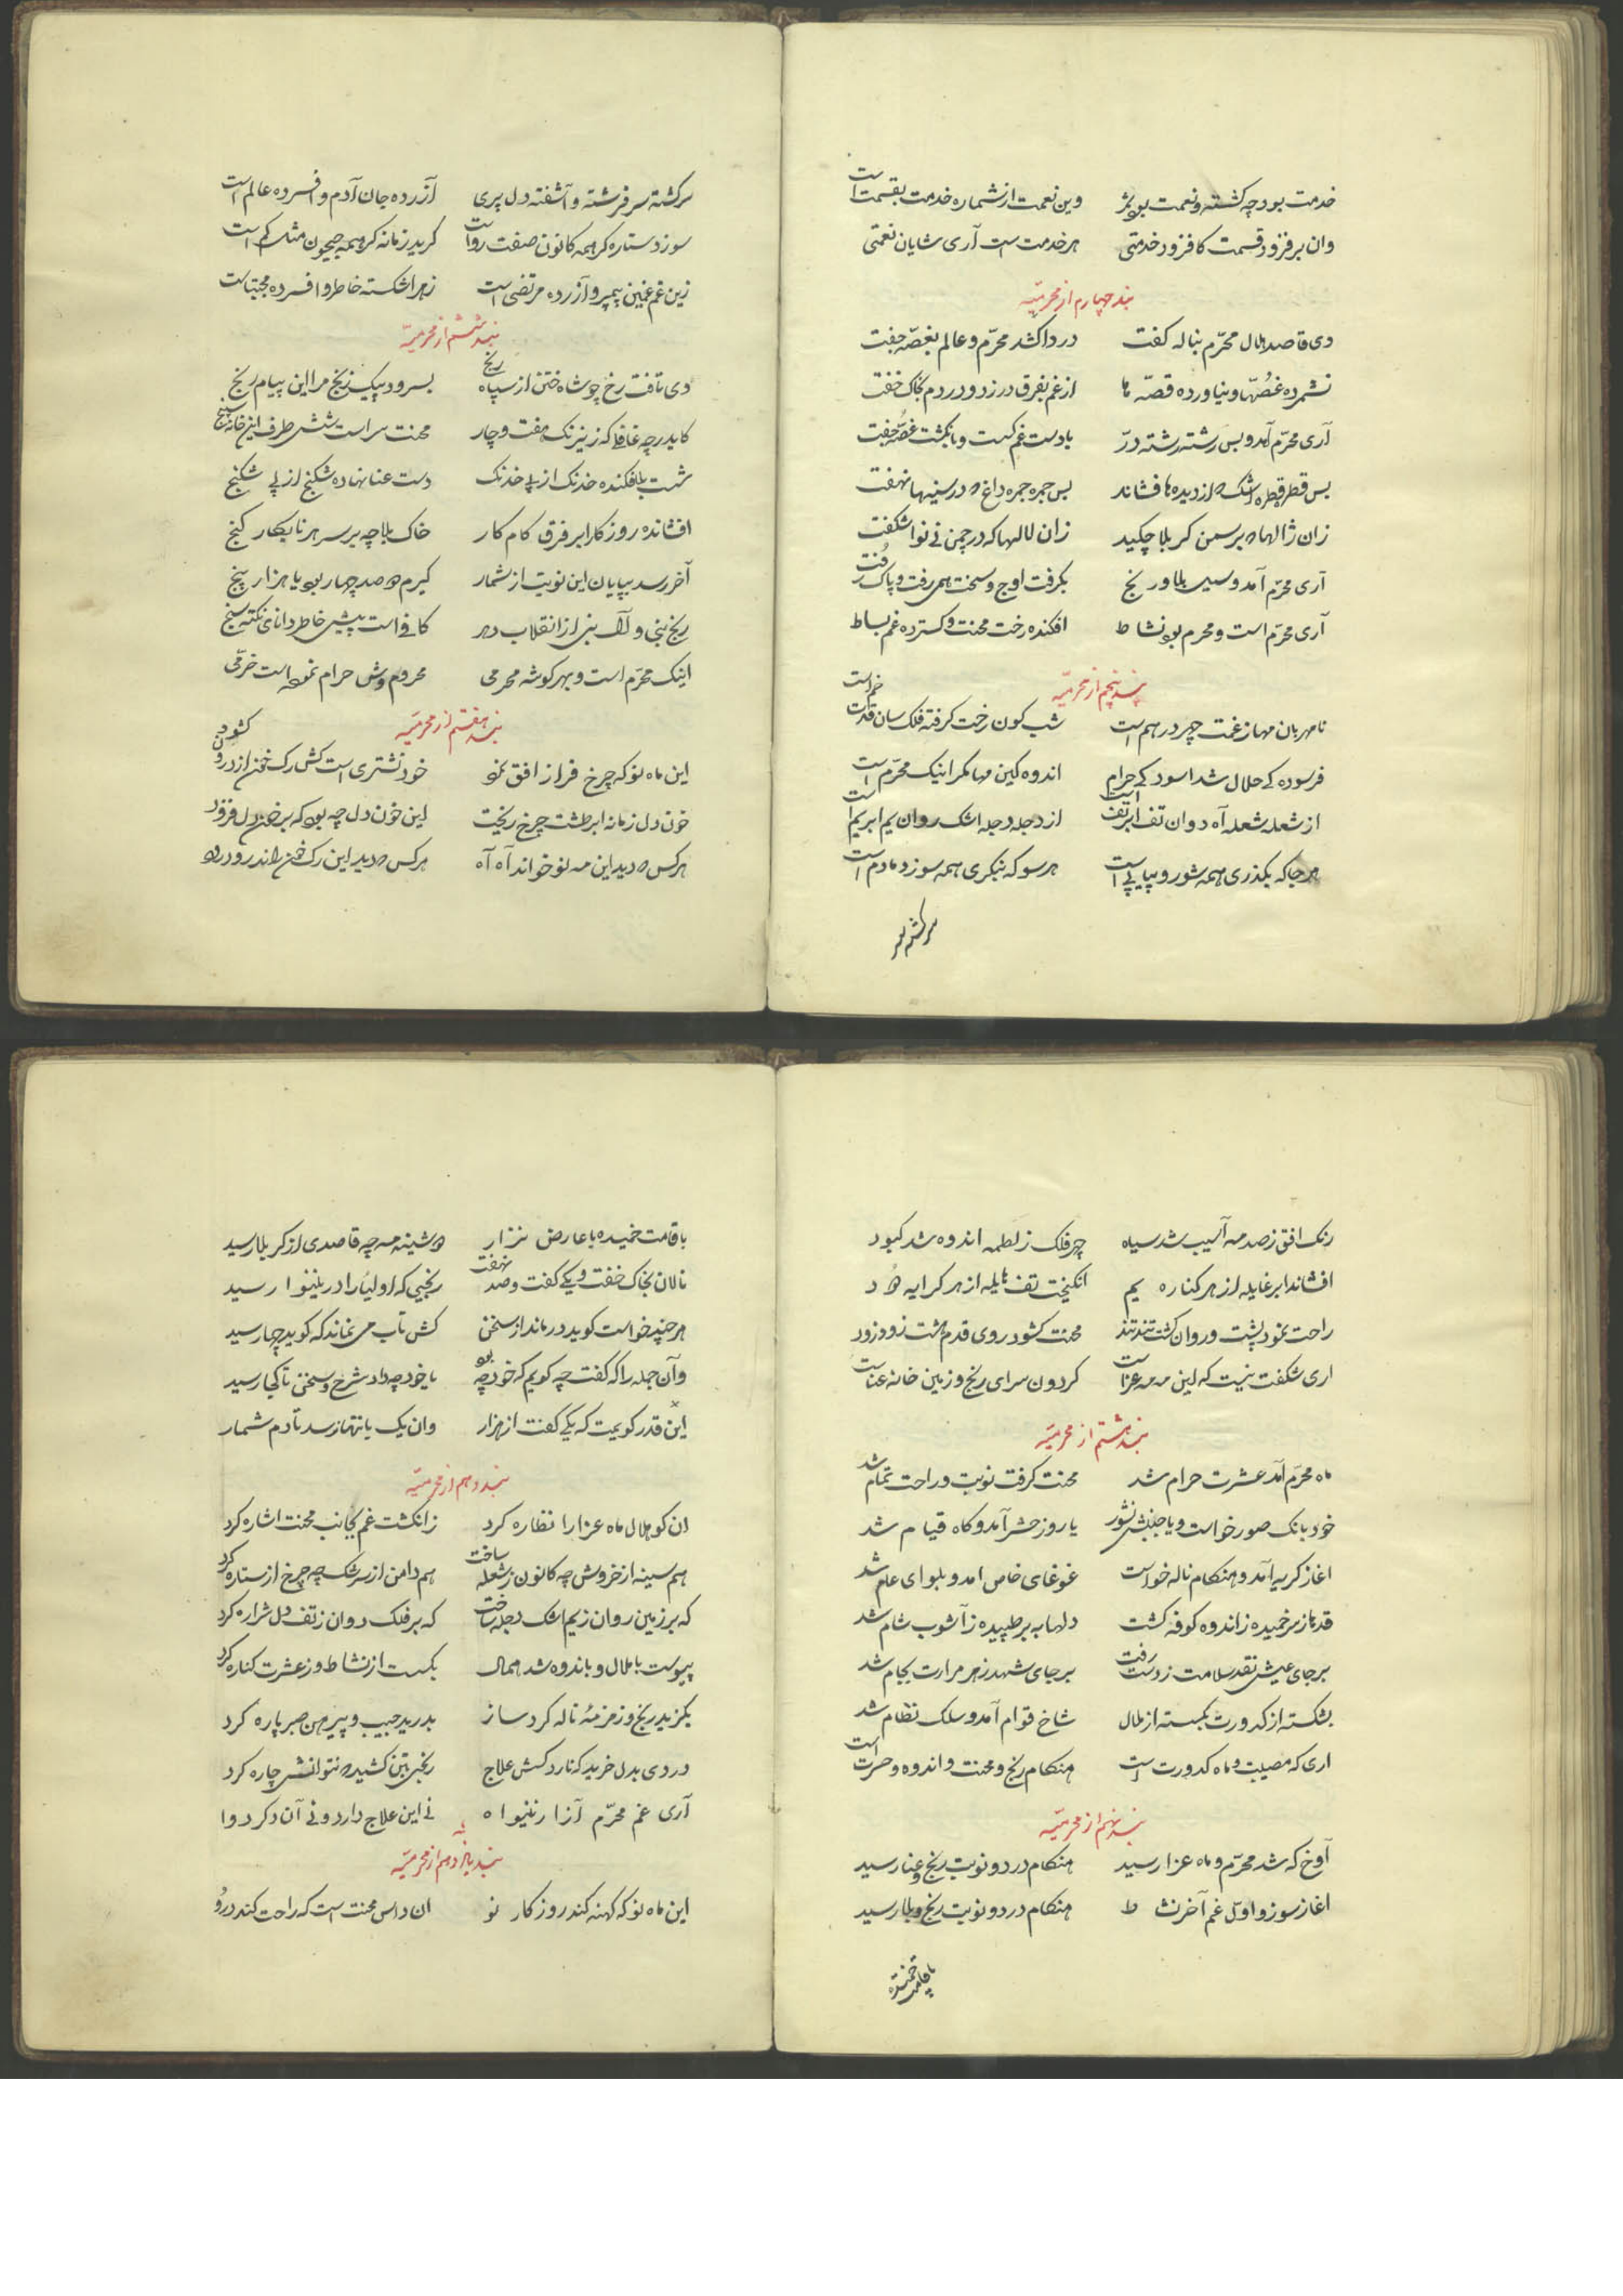 خدمت بود چه کشته و نعمت بود بذر وین نعمت از شماره خدمت بقسمت است
وان برفزود قسمت کافزود خدمتی هر خدمت است آری شایان نعمتی
بند چهارم از محرمیّه
دی قاصد هلال محرّم بناله کفت دردا که شد محرّم و عالم بغصّه جفت
نشمرده غصّها و نیاورده قصّه ها از غم بفرق در زد و در دم بخاک خفت
آری محرّم آمد و بس رشته رشته درّ با دست غم کست و بانکشت غصّه سفت
بس قطره قطره اشک که از دیده ها فشاند بس جمره جمره داغ که در سینها نهفت
زان ژالها که بر سمن کربلا چکید زان لالها که در چمن نی نوا شکفت
آری محرّم آمد و سیل بلا و رنج بکرفت اوج و سخت همی رفت و پاک رُفت
آری محرّم است و محرم بود نشاط افکنده رخت محنت و کسترده غم بساط
بند پنجم از محرمیّه
نامهربان مها ز غمت چهر درهم است شب کون رخت کرفته فلک سان قدت خم است
فرسوده کی حلال شد اسود کی حرام اندوه کین مها مکر اینک محرّم است
از شعله شعله آه دوان تف ابر تف است از دجله دجله اشک روان یم ابر یم است
هر جا که بکذری همه شور و پیاپی است هر سو که بنکری همه سوز دمادم است
سرکشته سر
سرکشته سر فرشته و آشفته دل پری آزرده جان آدم و افسرده عالم است
سوزد ستاره کر همه کانون صفت رواست کرید زمانه کر همه جیحون مثل کم است
زین غم غمین پیمبر و آزرده مرتضی است زهرا شکسته خاطر و افسرده مجتباست
بند ششم از محرمیّه
دی تافت رخ چو شاه ختن از سپاه زنج بسرود پیک زنج مرا این پیام رنج
کاید رچه غافلی که ز نیرنک هفت و چار محنت سراست شش طرف این خانه سپنج
شست بلا فکنده خدنک از پی خدنک دست عنا نهاده شکنج از پی شکنج
افشانده روزکار ابر فرق کام کار خاک بلا چه بر سر هر نابکار کنج
آخر رسد بپایان این نوبت از شمار کیرم که صد چهار بود یا هزار پنج
رنج بنی و آل بنی از انقلاب دهر کافی است پیش خاطر دانای نکته سنج
اینک محرّم است و بهر کوشه محرمی محروم وش حرام نموده است خرّمی
بند هفتم از محرمیّه
این ماه نو که چرخ فراز افق نمود خود نشتری است کش رک خون از درون کشود
خون دل زمانه ابر طشت چرخ ریخت این خون دل چه بود که بر خون دل فزود
هر کس که دید این مه نو خواند آه آه هر کس که دید این رک خون راند رود رود
رنک افق ز صدمه آسیب شد سیاه چهر فلک ز لطمه اندوه شد کبود
افشاند ابر غایله از هر کناره یم انکیخت تف هایله از هر کرایه دود
راحت نمود پشت و روان کشت تند تند محنت کشود روی و قدم هشت زود زود
اری شکفت نیست که این مه مه عزاست کردون سرای رنج و زمین خانه عناست
بند هشتم از محرمیّه
ماه محرّم آمد عشرت حرام شد محنت کرفت نوبت و راحت تمام شد
خود بانک صور خواست و یا جنبش نشور یا روز حشر آمد و کاه قیام شد
اغاز کریه آمد و هنکام ناله خواست غوغای خاص امد و بلوای عام شد
قدها ز سر خمیده ز اندوه کوفه کشت دلها به بر طپیده ز آشوب شام شد
بر جای عیش نقد سلامت ز دست رفت بر جای شهد زهر مرارت بجام شد
بشکسته از کدورت بکسسته از ملال شاخ قوام آمد و سلک نظام شد
اری که مصیبت و ماه کدورت است هنکام رنج و محنت و اندوه و حسرت است
بند نهم از محرمیّه
آوخ که شد محرّم و ماه عزا رسید هنکام درد و نوبت رنج و عنا رسید
اغاز سوز و اول غم آخر نشاط هنکام درد و نوبت رنج و بلا رسید
با قامت خمیده
با قامت خمیده با عارض نزار دوشینه مه چه قاصدی از کربلا رسید
نالان بخاک خفت و یکی کفت و صد نهفت رنجی که اولیا را در نینوا رسید
هر چند خواست کوید در ماند از سخن کش تاب می نماند که کوید چها رسید
وآن جمله را که کفت چه کویم که خود چه بود با خود چه داد شرح و سخن تا کجا رسید
این قدر کویمت که یکی کفت از هزار وان یک بانتها نرسد تا دم شمار
بند دهم از محرمیّه
ان کو هلال ماه عزا را نظاره کرد ز انکشت غم بجانب محنت اشاره کرد
هم سینه از خروش چه کانون ز شعله ساخت هم دامن از سرشک چه چرخ از ستاره کرد
که بر زمین روان ز یم اشک دجله ساخت که بر فلک دوان ز تف دل شراره کرد
پیوست با ملال و باندوه شد همال بکسست از نشاط و ز عشرت کناره کرد
بکزید رنج و زمزمهٔ ناله کرد ساز بدرید جیب و پیرهن صبر پاره کرد
دردی بدل خرید که نارد کسش علاج رنجی بتن کشید که نتوانش چاره کرد
آری غم محرّم آزار نینوا نی این علاج دارد و نی آن دکر دوا
بند یازدهم از محرمیّه
این ماه نو که کهنه کند روزکار نو ان داس محنت است که راحت کند درو